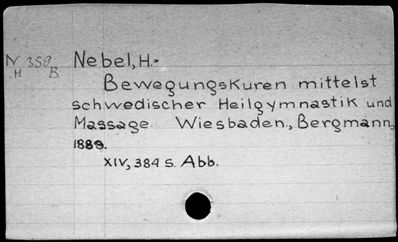 N 359 Nebel, H.-
H B
Bewegungskuren mittelst
schwedischer Heilgymnastik und
Massage. Wiesbaden, Bergmann,
1889.
XIV, 384 S. Abb.